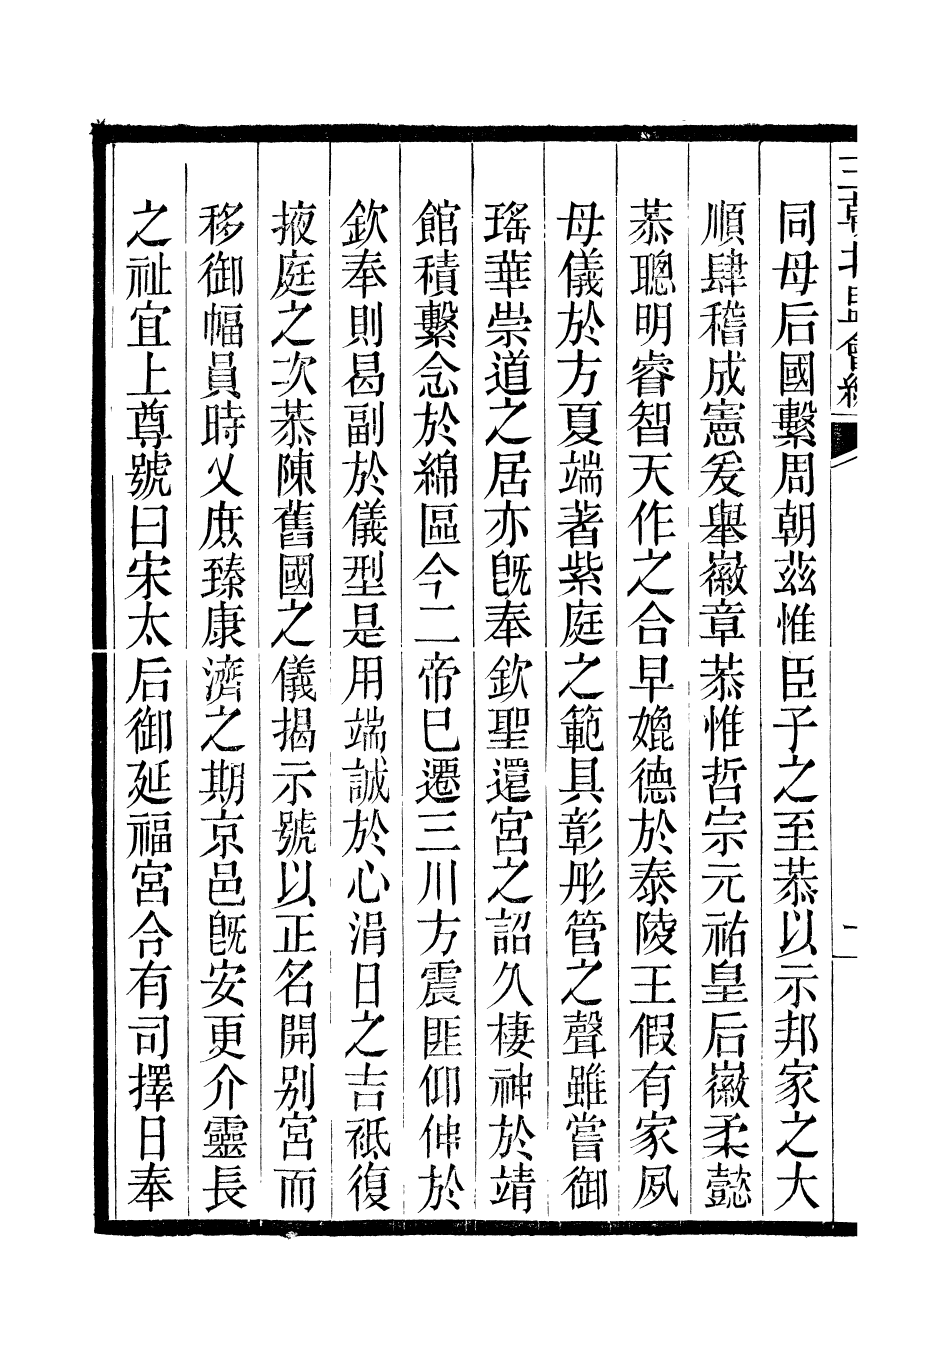 三朝北盟會編
一
同母后國繫周朝茲惟臣子之至恭以示邦家之大
順肆稽成憲爰舉徽章恭惟哲宗元祐皇后徽柔懿
恭聰明睿智天作之合早媲德於泰陵王假有家夙
母儀於方夏端著紫庭之範具彰彤管之聲雖嘗御
瑤華崇道之居亦旣奉欽聖還宮之詔久棲神於靖
館積繫念於綿區今二帝巳遷三川方震匪仰伸於
欽奉則曷副於儀型是用端誠於心涓日之吉祗復
掖庭之次恭陳舊國之儀揭示號以正名開別宮而
移御幅員時乂庶臻康濟之期京邑旣安更介靈長
之祉宜上尊號曰宋太后御延福宮令有司擇日奉